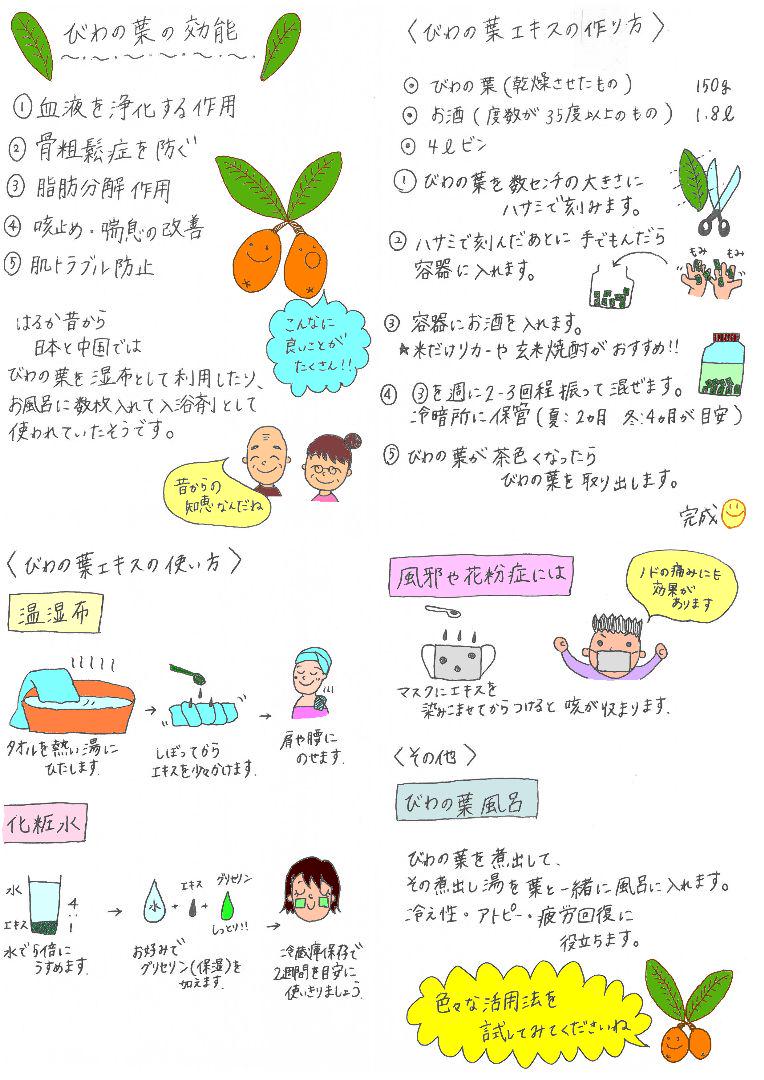 びわの葉の効能
①血液を浄化する作用
②骨粗鬆症を防ぐ
③脂肪分解作用
④咳止め・喘息の改善
⑤肌トラブル防止
こんなに
良いことが
たくさん!!
はるか昔から
日本と中国では
びわの葉を湿布として利用したり、
お風呂に数枚入れて入浴剤として
使われていたそうです。
昔からの
知恵なんだね
〈びわの葉エキスの作り方〉
⦿ びわの葉(乾燥させたもの) 150g
⦿ お酒(度数が35度以上のもの) 1.8ℓ
⦿ 4ℓビン
①びわの葉を数センチの大きさに
ハサミで刻みます。
②ハサミで刻んだあとに手でもんだら
容器に入れます。
もみ もみ
③容器にお酒を入れます。
★米だけリカーや玄米焼酎がおすすめ!!
④③を週に2-3回程振って混ぜます。
冷暗所に保管(夏:2ヵ月 冬:4ヵ月が目安)
⑤びわの葉が茶色くなったら
びわの葉を取り出します。
完成
〈びわの葉エキスの使い方〉
温湿布
タオルを熱い湯に
ひたします.
しぼってから
エキスを少々かけます.
肩や腰に
のせます.
化粧水
水 4
:
エキス 1
水で5倍に
うすめます.
水 + エキス + グリセリン
しっとり!!
お好みで
グリセリン(保湿)を
加えます.
冷蔵庫保存で
2週間を目安に
使いきりましょう.
風邪や花粉症には
ノドの痛みにも
効果が
あります
マスクにエキスを
染みこませてからつけると咳が収まります.
〈その他〉
びわの葉風呂
びわの葉を煮出して、
その煮出し湯を葉と一緒に風呂に入れます。
冷え性・アトピー・疲労回復に
役立ちます。
色々な活用法を
試してみてくださいね